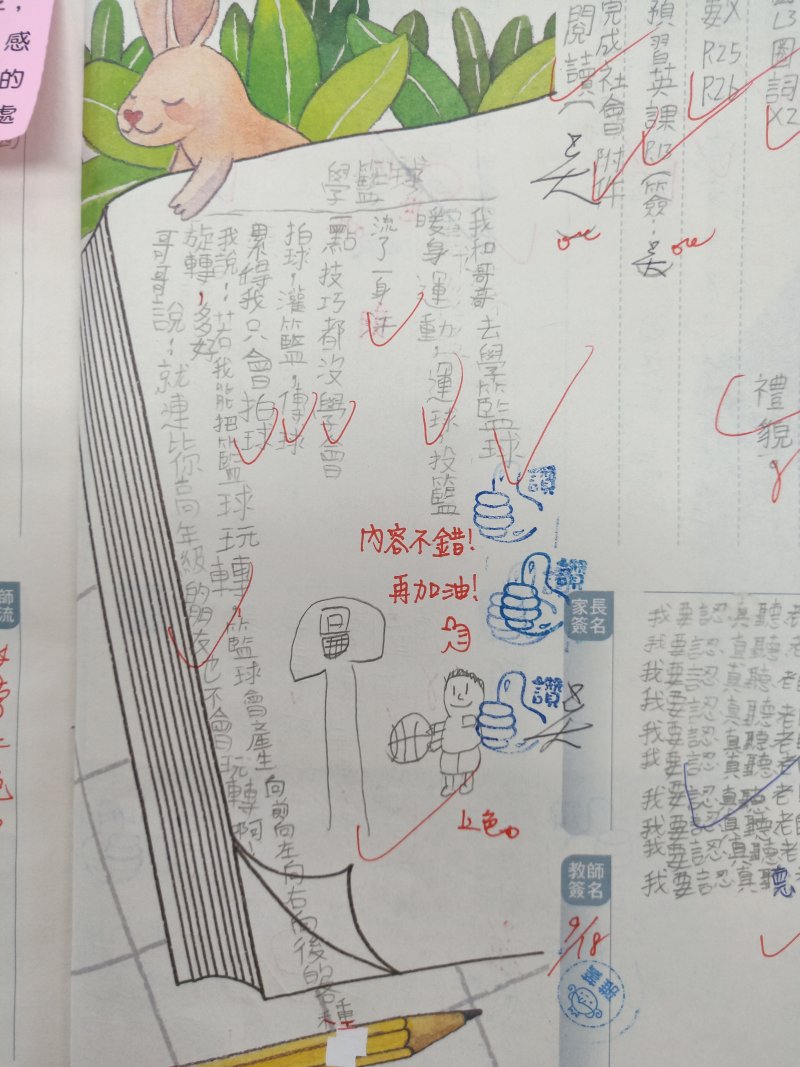 感
的
處
L3圈詞
X2
P25
P26
預習英課P12(簽:
完成社會附件
閱讀(
ove
ove
禮貌
學籃球
我和哥哥去學籃球
暖身運動,運球,投籃
流了一身汗
一點技巧都沒學會
拍球,灌籃,傳球
累得我只會拍球
我說:若我能把籃球玩轉,籃球會產生向前向左向右向後的各種
旋轉,多好
哥哥說:就連比你高年級的朋友也不會玩轉啊
讚
讚
讚
內容不錯!
再加油!
上色。
家長
簽名
我要認真聽老
我要認真聽老
我要認真聽老
我要認真聽老
我要認真聽老師
我要認真聽老
我要認真聽老
我要認真聽老師
我要認真聽老
我要認真聽老
教師
簽名
9/18
師
流
色。